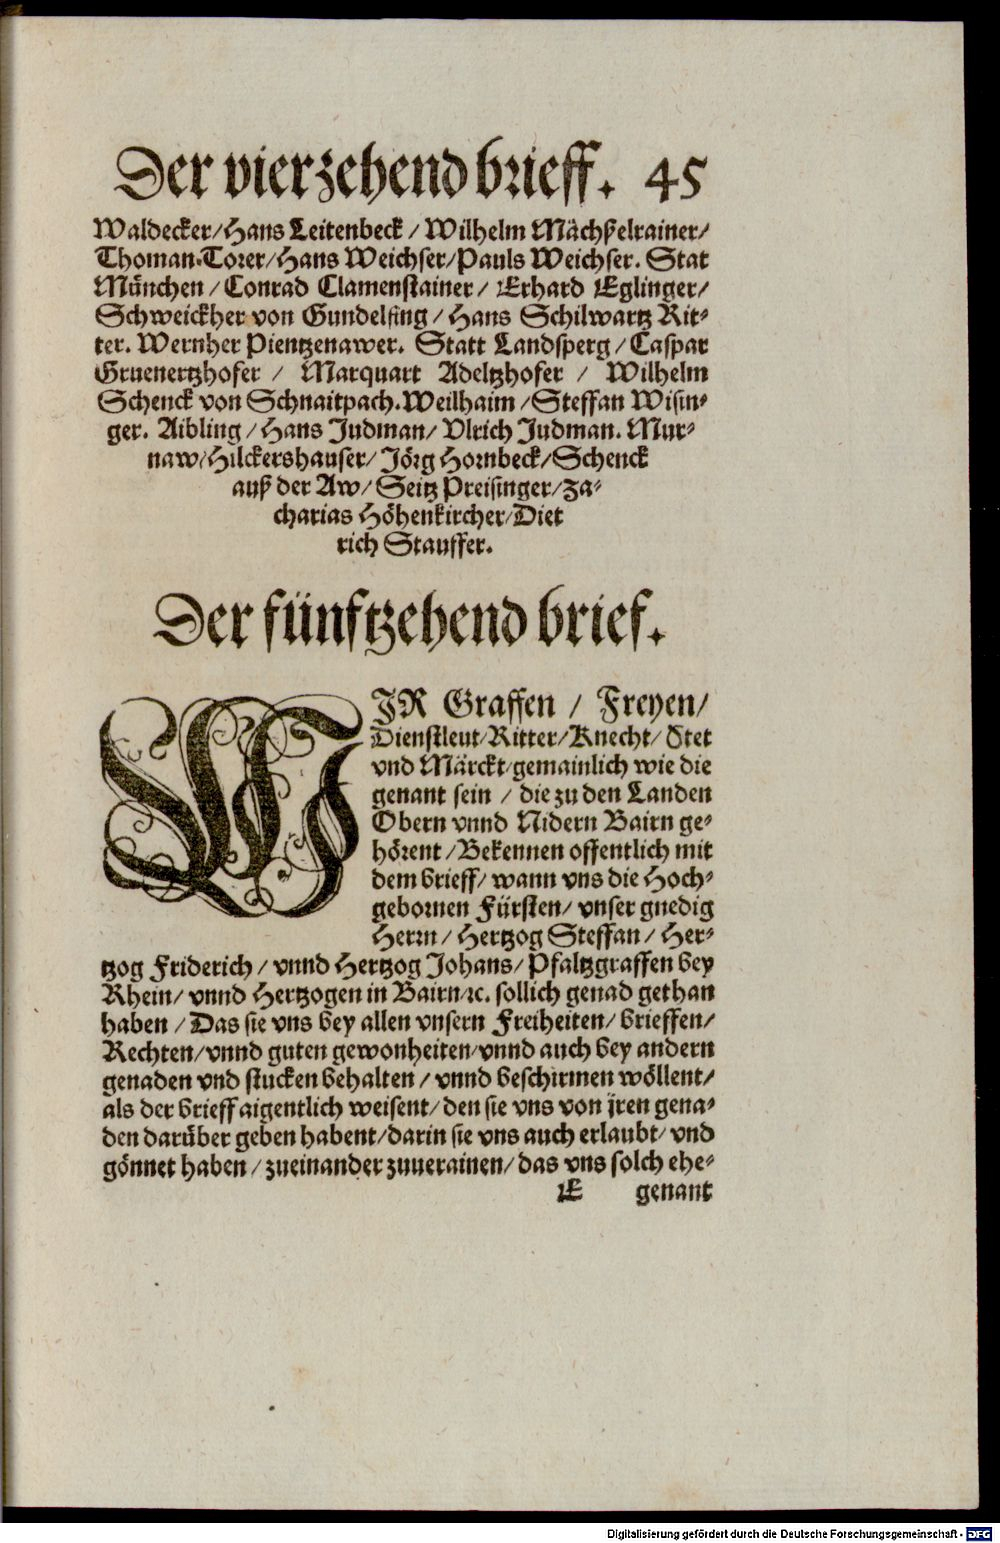 Der vierzehend brieff. 45
Waldecker/Hans Leitenbeck / Wilhelm Mächßelrainer/
Thoman Torer/Hans Weichser/Pauls Weichser. Stat
München / Conrad Clamenstainer / Erhard Eglinger/
Schweickher von Gundelfing / Hans Schilwartz Rit-
ter. Wernher Pientzenawer. Statt Landsperg / Caspar
Gruenertzhofer / Marquart Adeltzhofer / Wilhelm
Schenck von Schnaitpach. Weilhaim / Steffan Wisin-
ger. Aibling / Hans Judman / Vlrich Judman. Mur-
naw/Hilckershauser/ Jörg Hornbeck/Schenck
auß der Aw/ Seitz Preisinger/Za-
charias Höhenkircher/Diet
rich Stauffer.
Der fünftzehend brief.
WIR Graffen / Freyen/
Dienstleut/Ritter/Knecht/ Stet
vnd Märckt/gemainlich wie die
genant sein / die zu den Landen
Obern vnnd Nidern Bairn ge-
hörent / Bekennen offentlich mit
dem brieff/ wann vns die Hoch-
gebornen Fürsten/ vnser gnedig
Herrn / Hertzog Steffan / Her-
tzog Friderich / vnnd Hertzog Johans/ Pfaltzgraffen bey
Rhein/ vnnd Hertzogen in Bairn/ꝛc. sollich genad gethan
haben / Das sie vns bey allen vnsern Freiheiten/ brieffen/
Rechten/vnnd guten gewonheiten/vnnd auch bey andern
genaden vnd stucken behalten / vnnd beschirmen wöllent/
als der brieff aigentlich weisent/ den sie vns von jren gena-
den darüber geben habent/darin sie vns auch erlaubt/ vnd
gönnet haben / zueinander zuuerainen/ das vns solch ehe-
E genant
Digitalisierung gefördert durch die Deutsche Forschungsgemeinschaft - DFG